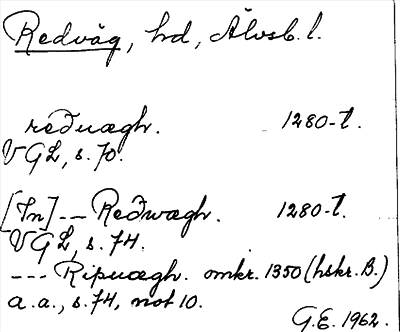 Redväg, hd, Älvsb. l.
reðuægh. 1280-t.
VGL, s. 70.
[In] --- Reðwægh. 1280-t.
VGL, s. 74.
--- Ripuægh. omkr. 1350 (hskr. B.)
a.a., s. 74, not 10.
G.E. 1962.